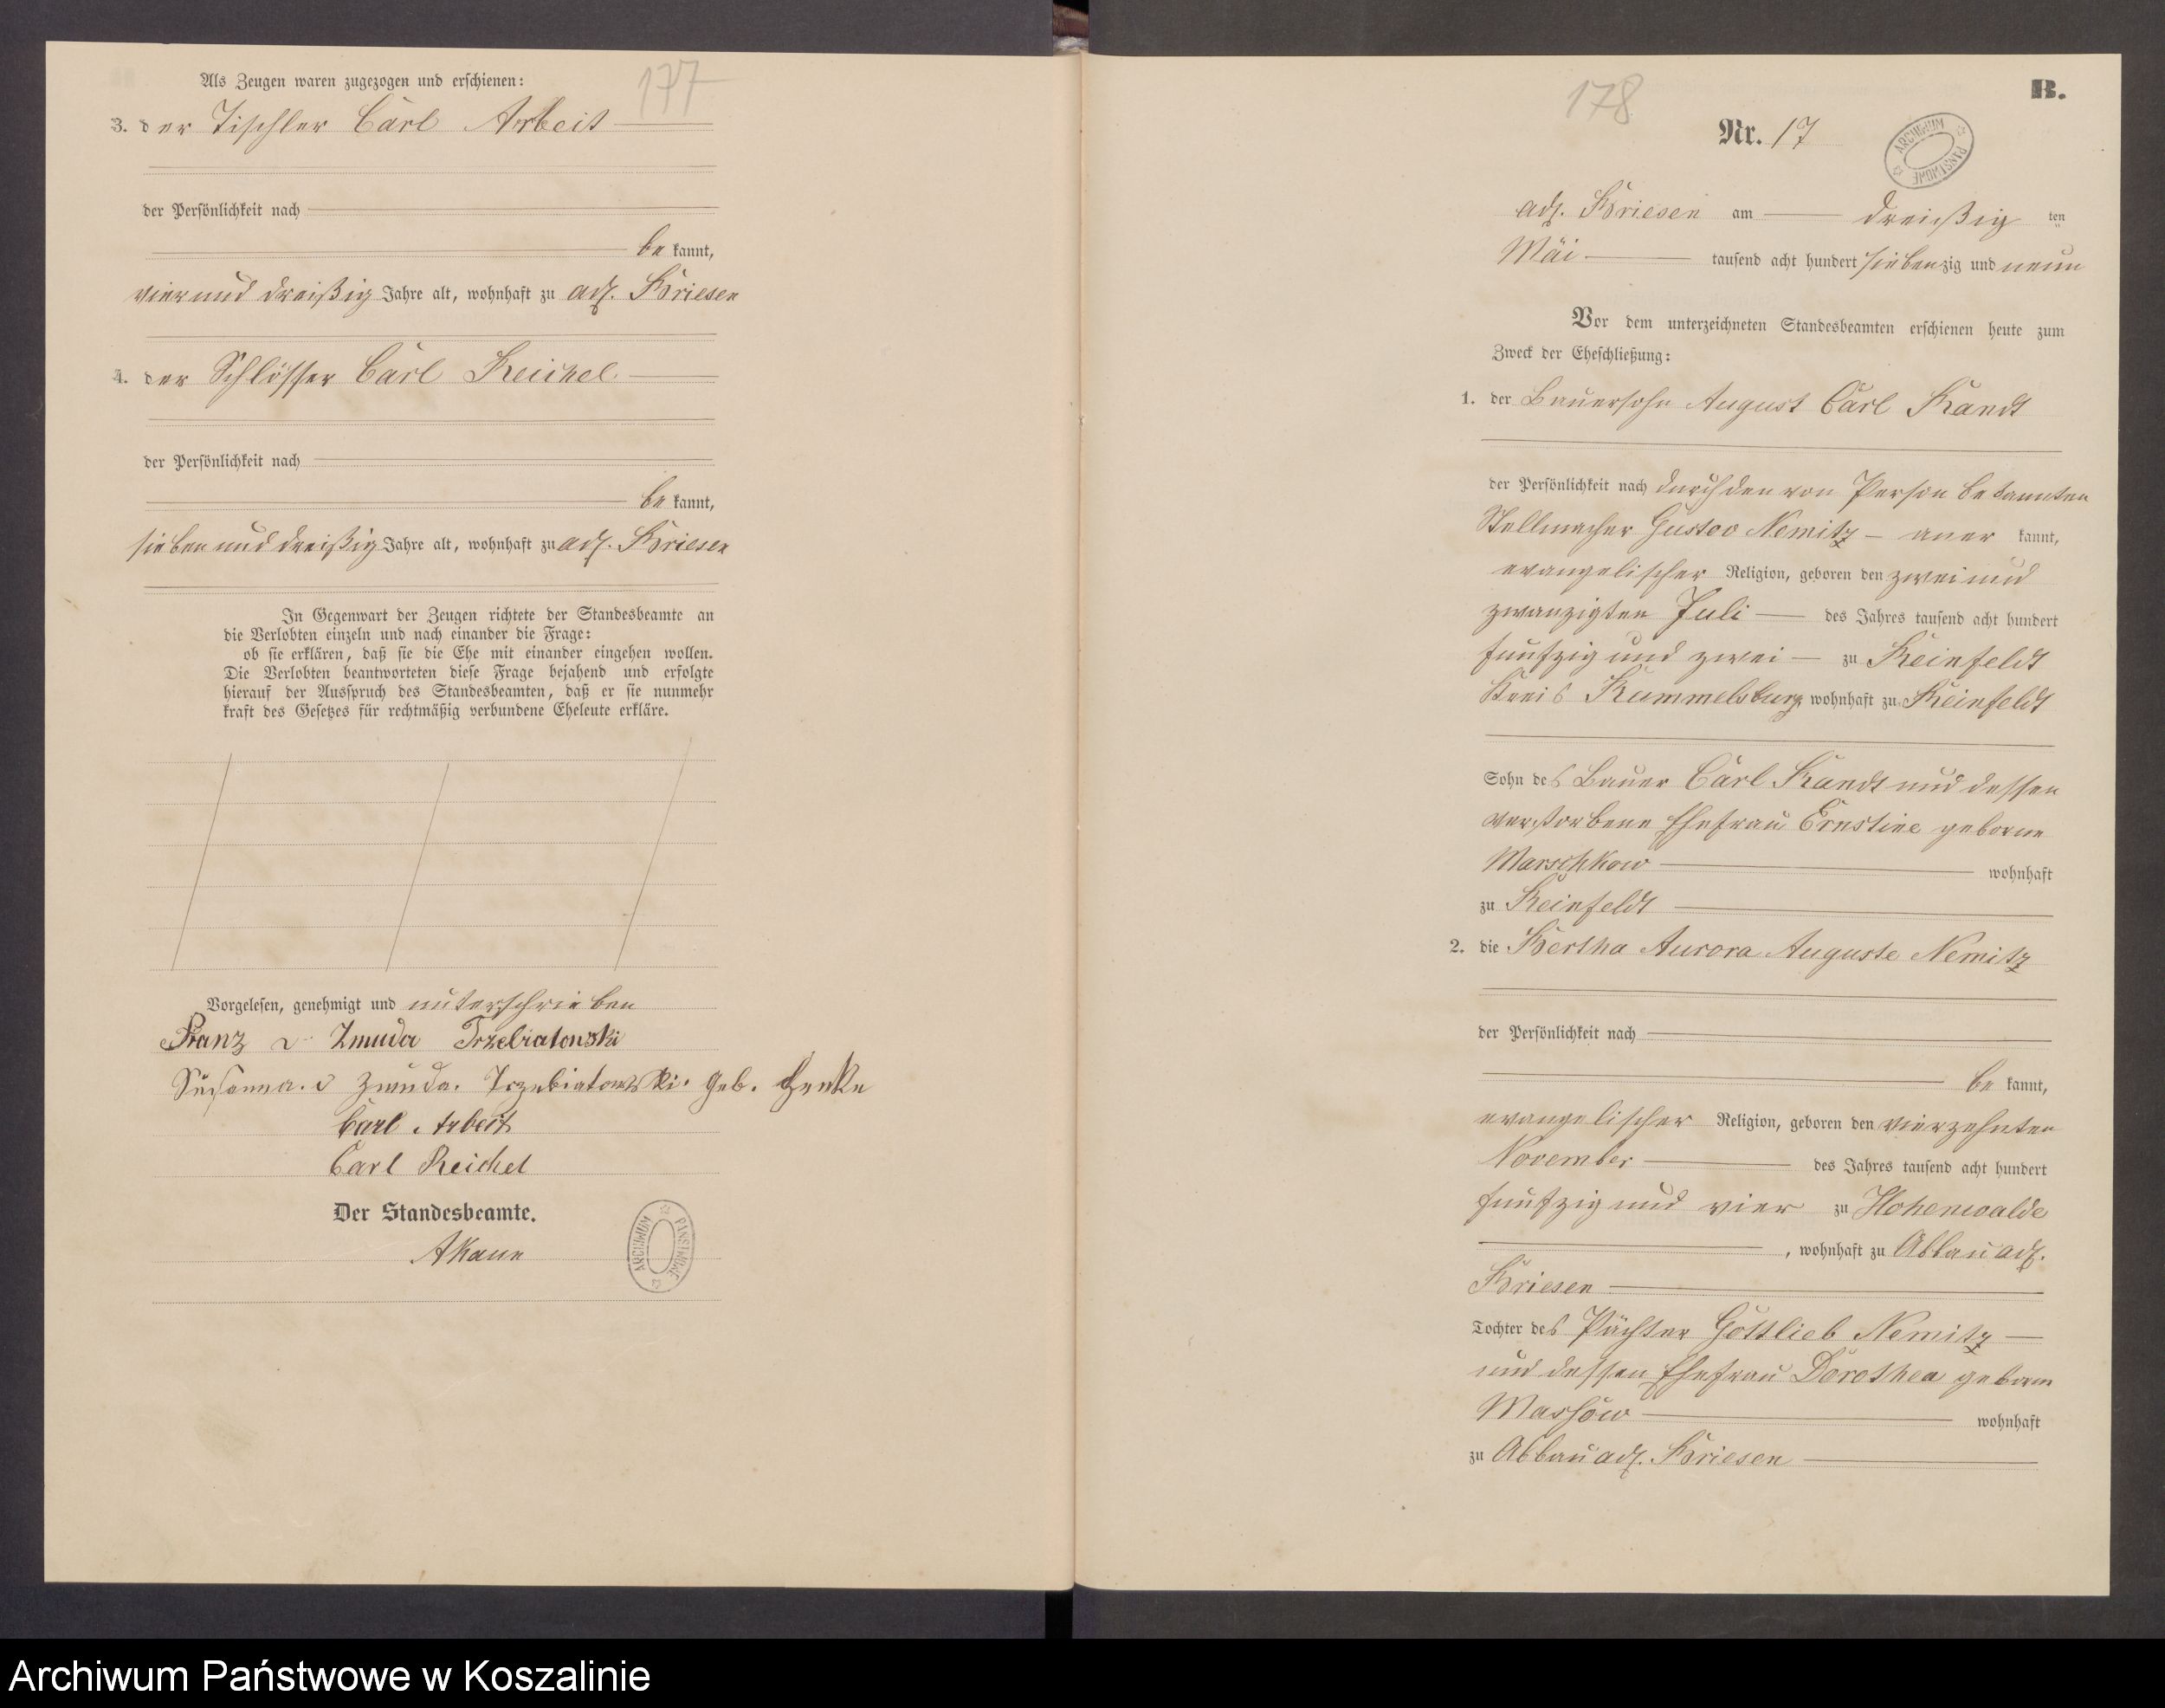 177
Als Zeugen waren zugezogen und erschienen:
3. der Tischler Carl Arbeit
der Persönlichkeit nach
be kannt,
vierund dreißig Jahre alt, wohnhaft zu adl. Briesen
4. der Schlosser Carl Reichel
der Persönlichkeit nach
be kannt,
sieben und dreißig Jahre alt, wohnhaft zu adl. Briesen
In Gegenwart der Zeugen richtete der Standesbeamte an
die Verlobten einzeln und nach einander die Frage:
ob sie erklären, daß sie die Ehe mit einander eingehen wollen.
Die Verlobten beantworteten diese Frage bejahend und erfolgte
hierauf der Ausspruch des Standesbeamten, daß er sie nunmehr
kraft des Gesetzes für rechtmäßig verbundene Eheleute erkläre.
Vorgelesen, genehmigt und unterschrieben
Franz v Zmuda Trzebiatowski
Susanna. v Zmuda. Trzebiatowski. geb.
Carl Arbeit
Carl Reichel
Der Standesbeamte.
ARCHIWUM PAŃSTWOWE
178
B.
Nr. 17
ARCHIWUM PAŃSTWOWE
adl. Briesen am dreißig ten
Mai tausend acht hundert siebenzig und neun
Vor dem unterzeichneten Standesbeamten erschienen heute zum
Zweck der Eheschließung:
1. der Bauersohn August Carl Kandt
der Persönlichkeit nach durch den von Person bekannten
Stellmacher Gustav Nemitz – aner kannt,
evangelischer Religion, geboren den zweiund
zwanzigten Juli des Jahres tausend acht hundert
funfzig und zwei zu Reinfeldt
Kreis Rummelsburg, wohnhaft zu Reinfeldt
Sohn des Bauer Carl Kandt und dessen
verstorbene Ehefrau Ernstine geborne
Marschkow wohnhaft
zu Reinfeldt
2. die Bertha Aurora Auguste Nemitz
der Persönlichkeit nach
be kannt,
evangelischer Religion, geboren den vierzehnten
November des Jahres tausend acht hundert
funfzig und vier zu Hohenwalde
, wohnhaft zu Abbau adl.
Briesen
Tochter des Pächter Gottlieb Nemitz
und dessen Ehefrau Dorothea geborn
Massow wohnhaft
zu Abbau adl. Briesen
Archiwum Państwowe w Koszalinie